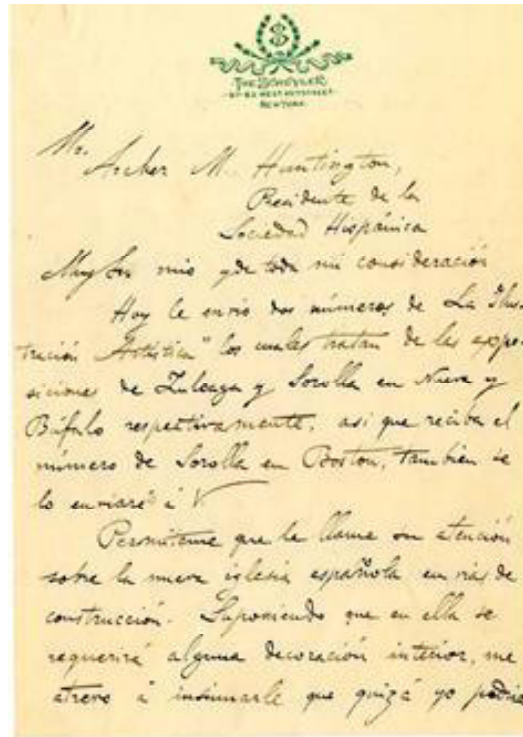 THE SCHUYLER
WEST 45TH STREET
NEW YORK
Mr.
Archer M. Huntington,
Presidente de la
Sociedad Hispánica
Muy Sr mio y de toda mi consideración
Hoy le envio dos números de La Ilus-
tración Artística" los cuales tratan de las expo-
siciones de Zuloaga y Sorolla en Nueva y
Búfalo respectivamente, asi que reciba el
número de Sorolla en Boston, tambien se
lo enviaré á V.
Permítame que le llame su atención
sobre la nueva iglesia española en vías de
construcción. Suponiendo que en ella se
requerirá alguna decoración interior, me
atrevo á insinuarle que quizá yo podria